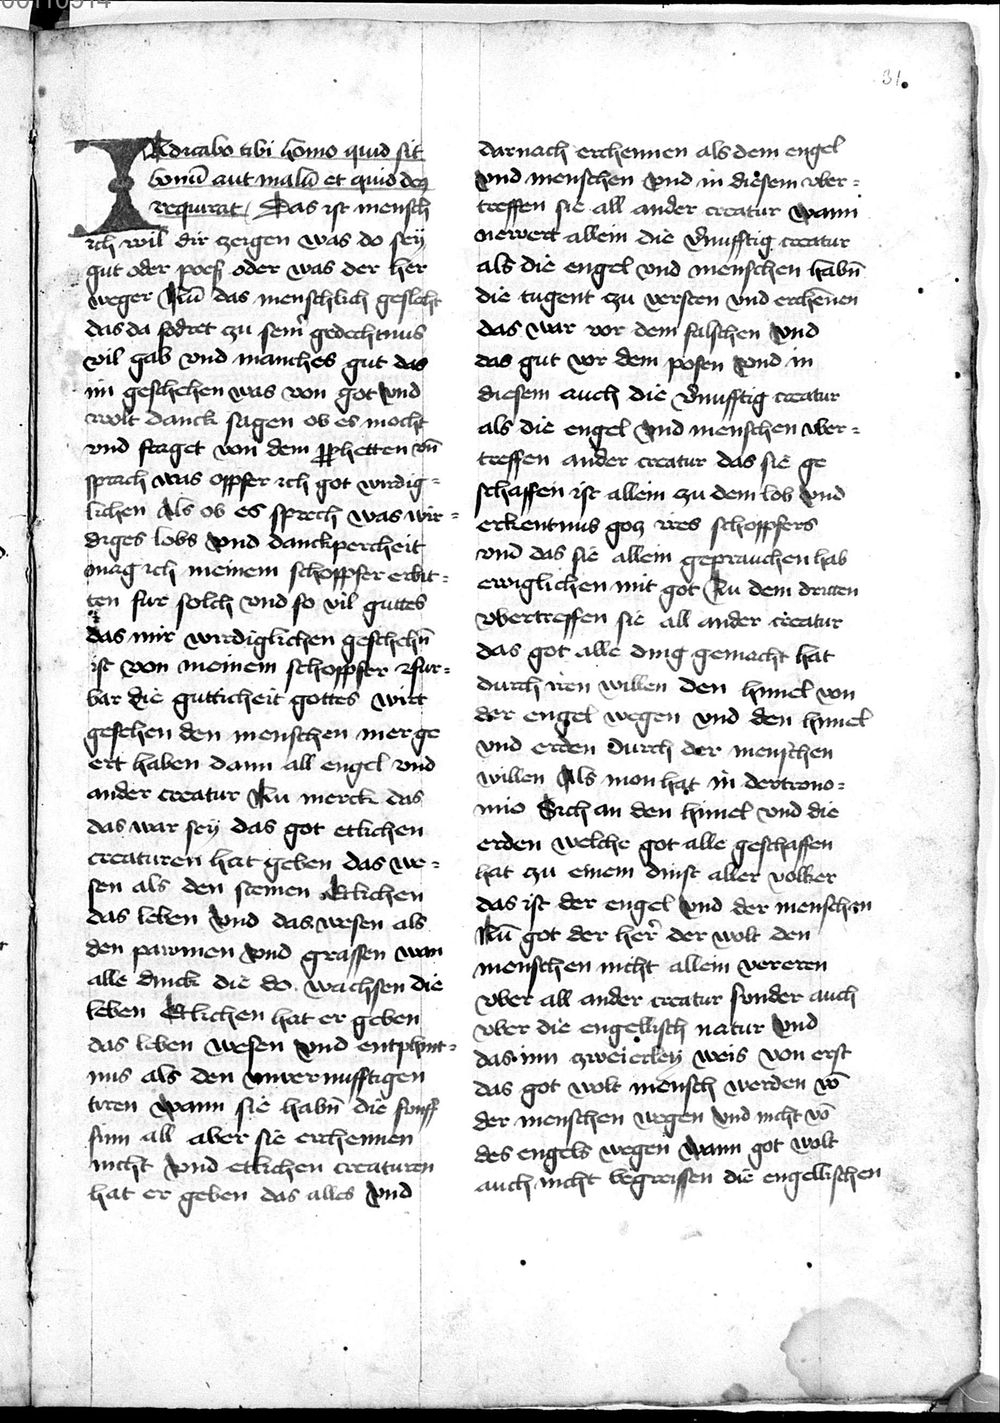 31.
INdicabo tibi homo quid sit
bonū aut malū et quid deꝯ
requirat / Das ist mensch
ich wil dir zeigen was do sey
gut oder poeß oder was der her
weger Nū das menschlich geslecht
das da fodret zu sem̄ gedechtnus
vil gab vnd manches gut das
im geschehen was von got vnd
wolt danck sagen ob es mocht
vnd fraget von dem ꝓphetten vn̄
sprach was oppfer ich got wirdig=
lichen Als ob es sprech was wir=
diges lobs vnd danckpercheit
mag ich meinem schoppfer erbit=
ten fur solch vnd so vil guttes
das mir wirdiglichen geschehn̄
ist von meinem schoppfer
bar die gutticheit gottes wirt
gesehen den menschen mer ge
ert haben dann all engel vnd
ander creatur Nu merck das
das war sey das got etlichen
creaturen hat geben das we=
sen als den steinen Etlichen
das leben vnd das wesen als
den pawmen vnd grassen wan
alle dinck die do wachsen die
leben Etlichen hat er geben
das leben wesen vnd entphint=
nus als den vnvernufftigen
tiren wann sie habn̄ die funff
sinn all aber sie erchennen
nicht vnd etlichen creaturen
hat er geben das alles vnd
darnach erchennen als dem engel
vnd menschen vnd in diesem vber=
treffen sie all ander creatur wann
newert allein die v̄nufftig creatur
als die engel vnd menschen habn̄
die tugent zu versten vnd erchēnen
das war vor dem falschen vnd
das gut vor dem posen vnd in
diesem auch die v̄nufftig creatur
als die engel vnd menschen vber=
treffen ander creatur das sie ge
schaffen ist allein zu dem lob vnd
erkentnus gotz ires schoppfers
vnd das sie allein geprauchen hab
ewiglichen mit got Zu dem dritten
vbertreffen sie all ander creatur
das got alle ding gemacht hat
durch iren willen den himel von
der engel wegen vnd den himel
vnd erden durch der menschen
willen Als mon hat in dertrono=
mio Sich an den himel vnd die
erden welche got alle geschaffen
hat zu einem dinst aller volker
das ist der engel vnd der menschen
Nū got der her̄ der wolt den
menschen nicht allein vereren
vber all ander creatur sunder auch
vber die engellisch natur vnd
das inn zweierley weis von erst
das got wolt mensch werden vō
der menschen wegen vnd nicht vō
des engels wegen wann got wolt
auch nicht begreiffen die engellischen